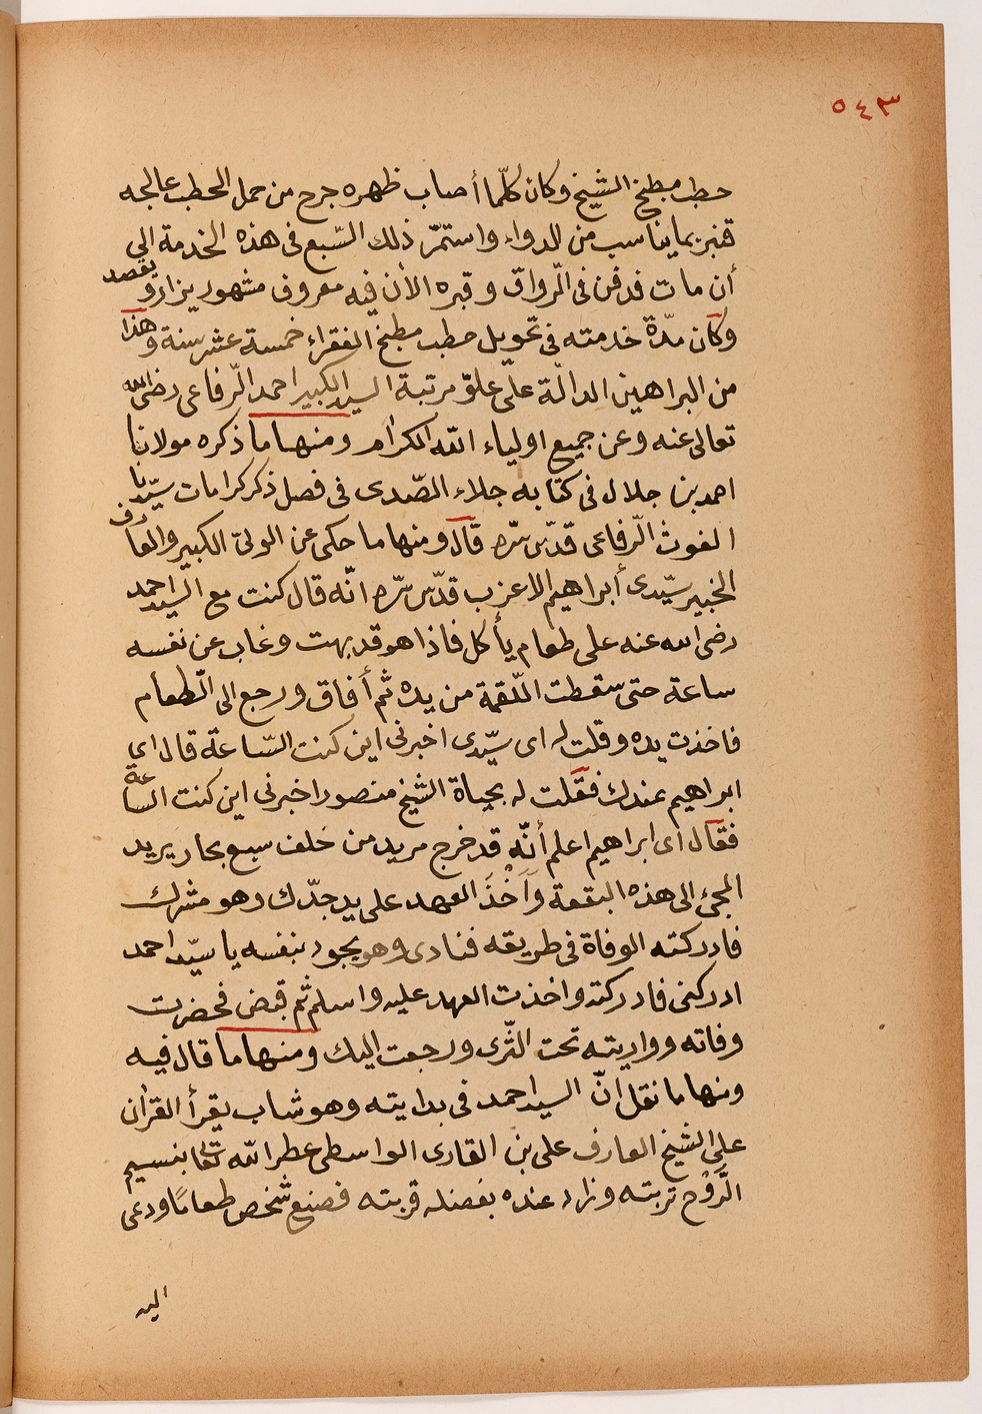 ٥٤٣
حطب مطبخ الشيخ وكان كلّما أصاب ظهره جرح من حمل الحطب عالجه
قنبر بما يناسب من الدواء واستمرّ ذلك السّبع فى هذه الخدمة الى
أن مات فدفن فى الرّواق وقبره الأن فيه معروف مشهور يزار ويقصد
وكان مدّة خدمته فى تحويل حطب مطبخ الفقراء خمسة عشر سنة وهذا
من البراهين الدالّة على علوّ مرتبة السيد الكبير احمد الرّفاعى رضى الله
تعالى عنه وعن جميع اولياء الله الكرام ومنها ما ذكره مولانا
احمد بن جلال فى كتابه جلاء الصّدى فى فصل ذكر كرامات سيّدنا
الغوث الرّفاعى قدّس سّره قال ومنها ما حكى عن الولىّ الكبير والعارف
الخبير سيّدى أبراهيم الاعزب قدّس سّره انّه قال كنت مع السيد احمد
رضى الله عنه على طعام يأكل فاذا هو قد بهت وغاب عن نفسه
ساعة حتى سقطت اللّقمة من يده ثم أفاق ورجع الى الطّعام
فاخذت يده وقلت له اى سيّدى اخبرنى اين كنت السّاعة قال اى
ابراهيم عندك فقلت له بحياة الشيخ منصور اخبرنى اين كنت الساعة
فقال اى ابراهيم اعلم أنّه قد خرج مريد من خلف سبع بحار يريد
المجئ الى هذه البقعة وَأَخْذَ العهد على يد جدّك وهو مشرك
فادركته الوفاة فى طريقه فنادى وهو يجود بنفسه يا سيّد احمد
ادركنى فادركته واخذت العهد عليه واسلم ثم قبض فحضرت
وفاته وواريته تحت الثّرى ورجعت اليك ومنها ما قال فيه
ومنها ما نقل انّ السيد احمد فى بدايته وهو شاب يقرأ القرأن
على الشيخ العارف على بن القارى الواسطى عطر الله تعالى بنسيم
الرَّوْح تربته وزاد عنده بفضله قربته فصنع شخص طعامًا ودعى
اليه